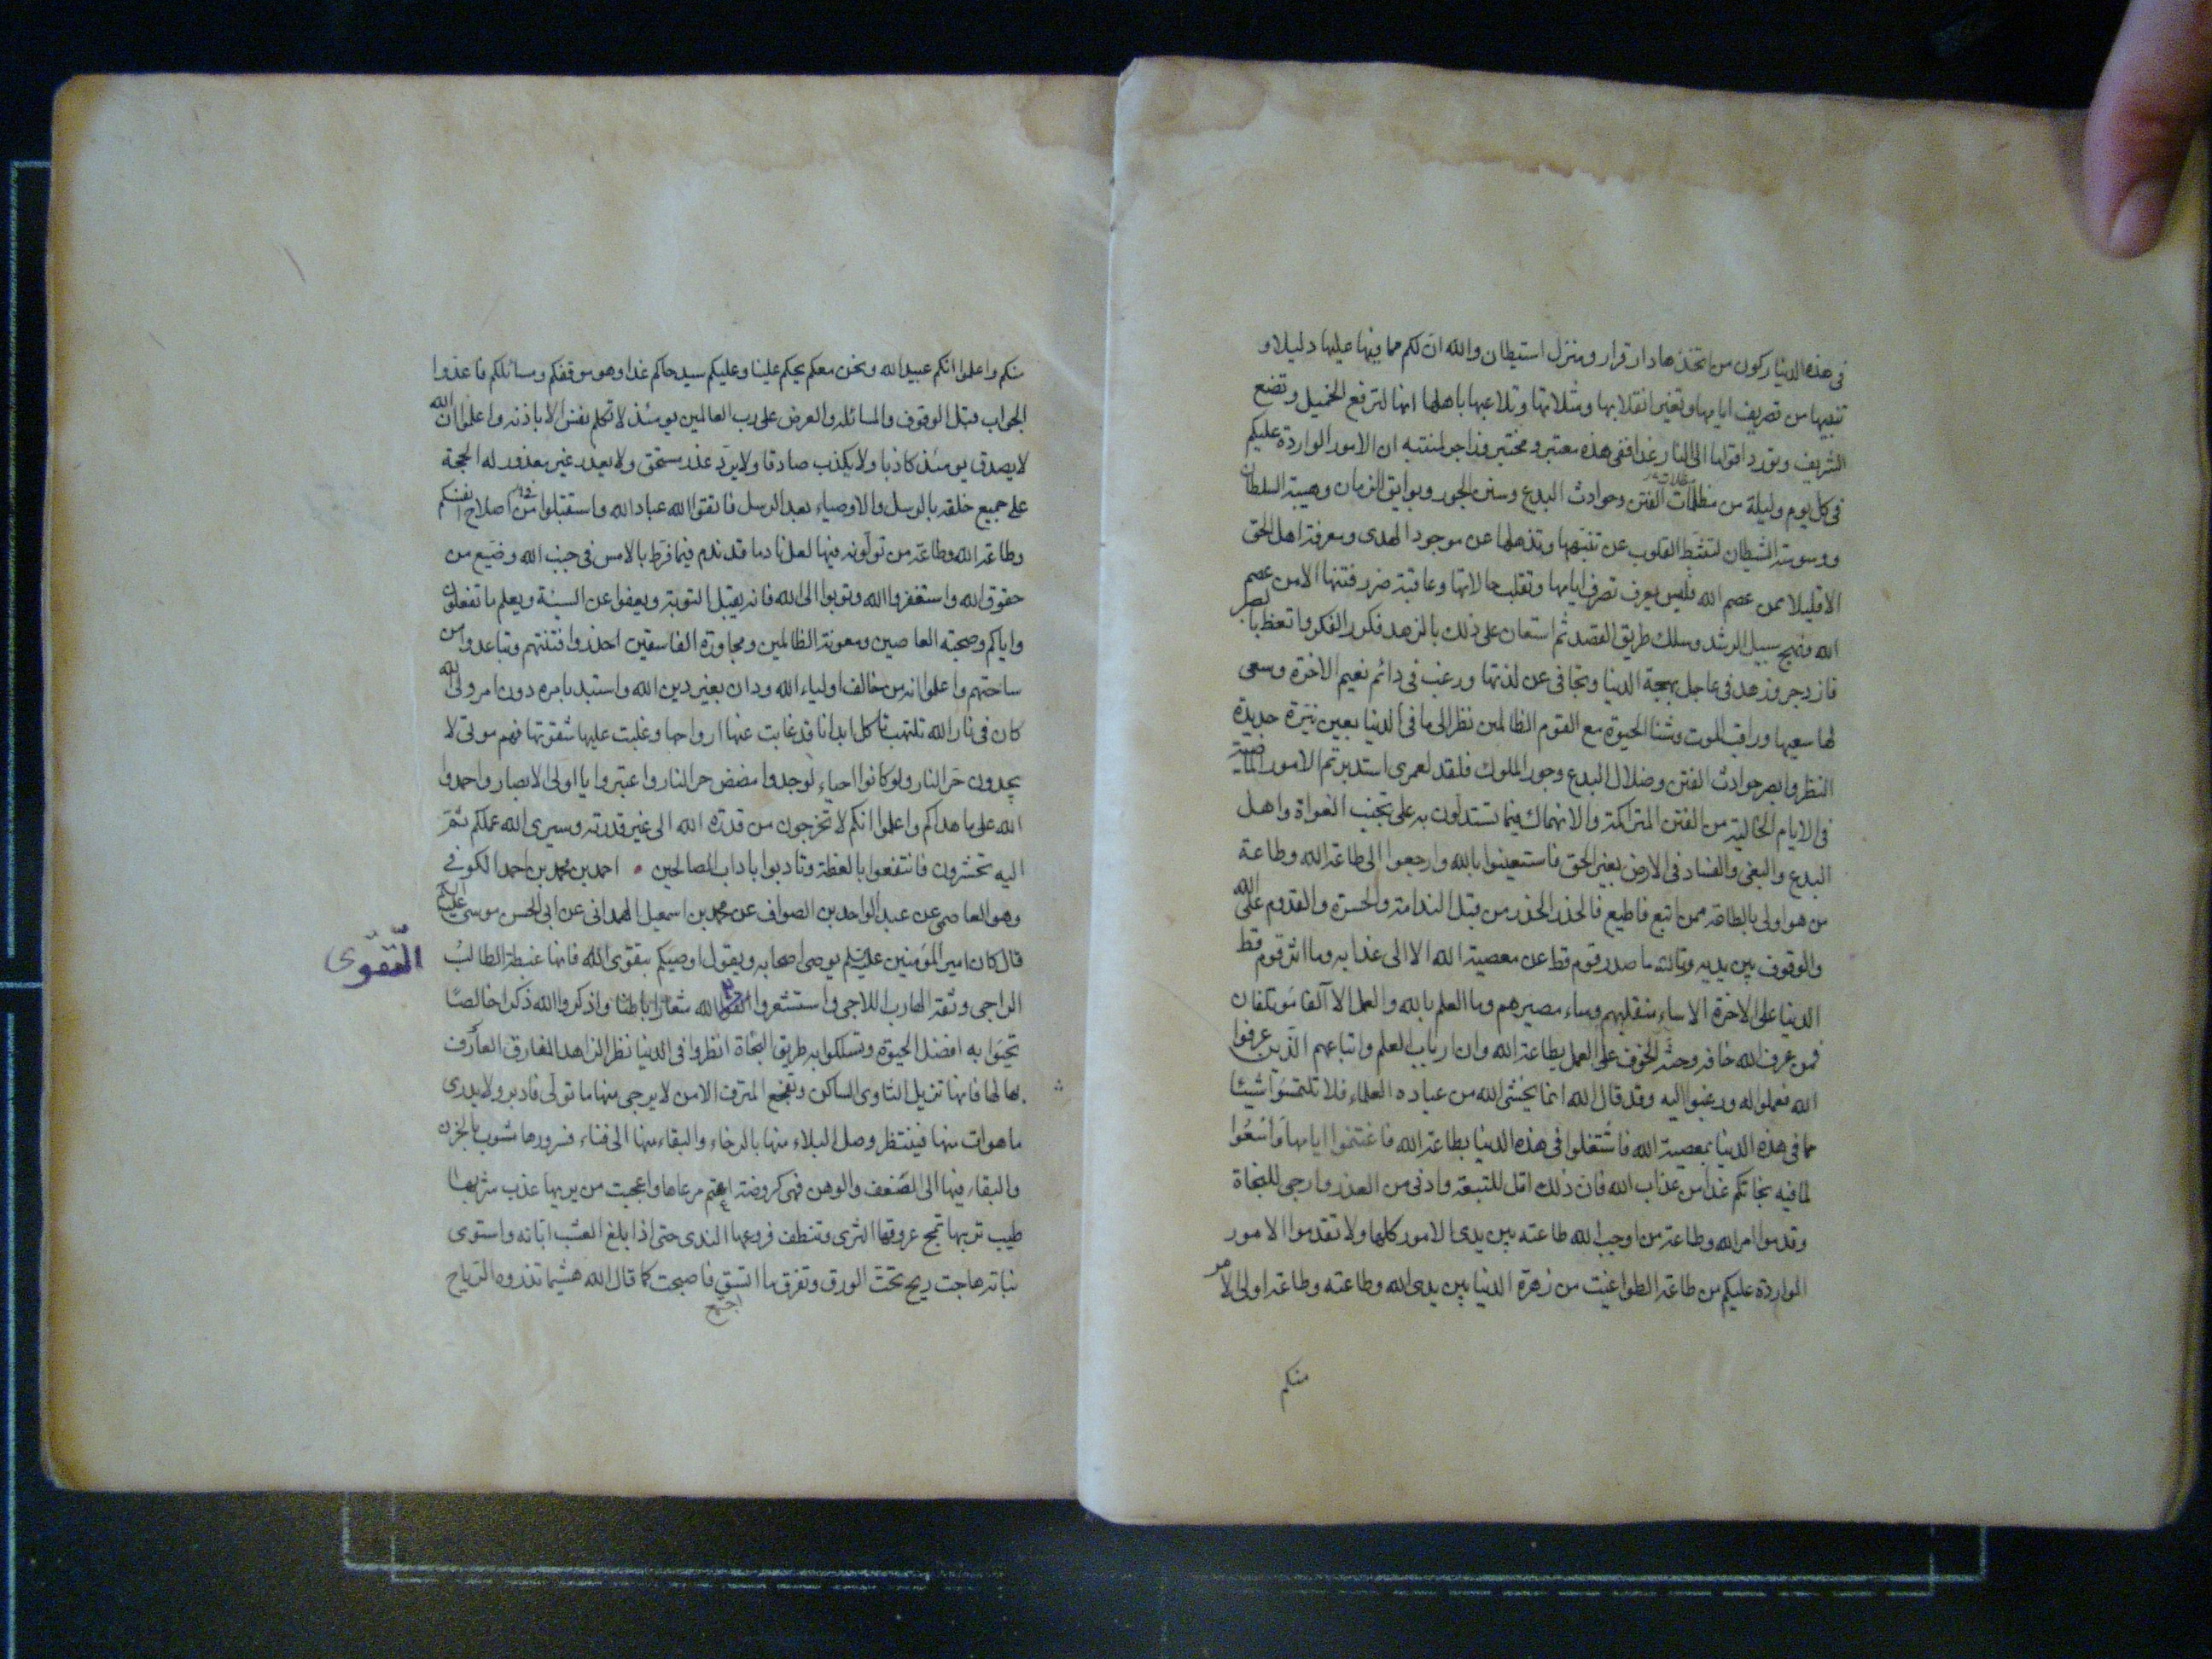 فى هذه الدنيا ركون من اتخذها دار قرار ومنزل استيطان والله ان لكم مما فيها عليها دليلا و
تنبيها من تصريف ايامها وتغير انقلابها ومثلاتها وتلاعبها باهلها انها لترفع الخميل وتضع
الشريف وتورد اقواما الى النار غدا ففى هذه معتبر ومختبر وزاجر لمنتبه ان الامور الواردة عليكم
فى كل يوم وليلة من مظلمات الفتن وحوادث البدع وسنن الجور وبوايق الزمان وهيبة السلطان
ووسوسة الشيطان لتثبط القلوب عن تنبهها وتذهلها عن موجود الهدى ومعرفة اهل الحق
الا قليلا ممن عصم الله فليس يعرف تصرف ايامها وتقلب حالاتها وعاقبة ضرر فتنتها الا من عصم
الله ونهج سبيل الرشد وسلك طريق القصد ثم استعان على ذلك بالزهد فكرر الفكر واتعظ بالصبر
فازدجر وزهد فى عاجل بهجة الدنيا وتجافى عن لذتها ورغب فى دائم نعيم الاخرة وسعى
لها سعيها وراقب الموت وشنا الحيوة مع القوم الظالمين نظر الى ما فى الدنيا بعين نيرة حديدة
النظر وابصر حوادث الفتن وضلال البدع وجور الملوك فلقد لعمرى استدبرتم الامور الماضية
فى الايام الخالية من الفتن المتراكمة والانهماك فيما تستدلون به على تجنب الغواة واهل
البدع والبغى والفساد فى الارض بغير الحق فاستعينوا بالله وارجعوا الى طاعة الله وطاعة
من هو اولى بالطاعة ممن اتبع فاطيع فالحذر الحذر من قبل الندامة والحسرة والقدوم على الله
والوقوف بين يديه وتالله ما صدر قوم قط عن معصية الله الا الى عذابه وما اثر قوم قط
الدنيا على الاخرة الا ساء منقلبهم وساء مصيرهم وما العلم بالله والعمل الا آلفان مؤتلفان
فمن عرف الله خافه وحثه الخوف على العمل بطاعة الله وان ارباب العلم واتباعهم الذين عرفوا
الله فعملوا له ورغبوا اليه وقد قال الله انما يخشى الله من عباده العلماء فلا تلتمسوا شيئا
مما فى هذه الدنيا بمعصية الله فاشتغلوا فى هذه الدنيا بطاعة الله فاغتنموا ايامها واسعوا
لما فيه نجاتكم غدا من عذاب الله فان ذلك اقل للتبعة وادنى من العذر وارجى للنجاة
وقدموا امر الله وطاعة من اوجب الله طاعته بين يدى الامور كلها ولا تقدموا الامور
الواردة عليكم من طاعة الطواغيت من زهرة الدنيا بين يدى الله وطاعته وطاعة اولى الامر
منكم
منكم واعلموا انكم عبيد الله ونحن معكم يحكم علينا وعليكم سيد حاكم غدا وهو موقفكم ومسائلكم فاعدوا
الجواب قبل الوقوف والمسائلة والعرض على رب العالمين يومئذ لا تكلم نفس الا باذنه واعلموا ان الله
لا يصدق يومئذ كاذبا ولا يكذب صادقا ولا يرد عذر مستحق ولا يعذر غير معذور له الحجة
على جميع خلقه بالرسل والاوصياء بعد الرسل فاتقوا الله عباد الله واستقبلوا من اصلاح انفسكم
وطاعة الله وطاعة من تولونه فيها لعل نادما قد ندم فيما فرط بالامس فى جنب الله وضيع من
حقوق الله واستغفروا الله وتوبوا الى الله فانه يقبل التوبة ويعفوا عن السيئة ويعلم ما تفعلون
واياكم وصحبة العاصين ومعونة الظالمين ومجاورة الفاسقين احذروا فتنتهم وتباعدوا من
ساحتهم واعلموا انه من خالف اولياء الله ودان بغير دين الله واستبد بامره دون امر ولى الله
كان فى نار الله تلتهب تاكل ابدانا قد غابت عنها ارواحها وغلبت عليها شقوتها فهم موتى لا
يجدون حر النار ولو كانوا احياء لوجدوا مضض حر النار واعتبروا يا اولى الابصار واحمدوا
الله على ما هداكم واعلموا انكم لا تخرجون من قدرة الله الى غير قدرته وسيرى الله عملكم ثم
اليه تحشرون فانتفعوا بالعظة وتادبوا باداب الصالحين • احمد بن محمد بن احمد الكوفى
وهو العاصمى عن عبد الواحد بن الصواف عن محمد بن اسمعيل الهمدانى عن ابى الحسن موسى عليه السلم
قال كان امير المؤمنين عليه السلم يوصى اصحابه ويقول اوصيكم بتقوى الله فانها غبطة الطالب
التقوى
الراجى وثقة الهارب اللاجى واستشعروا التقوى الله شعارا باطنا واذكروا الله ذكرا خالصا
تحيوا به افضل الحيوة وتسلكوا به طريق النجاة انظروا فى الدنيا نظر الزاهد المفارق العارف
بها لها فانها تزيل الثاوى الساكن وتفجع المترف الامن لا يرجى منها ما تولى فادبر ولا يدرى
ما هو ات منها فينتظر وصل البلاء منها بالرخاء والبقاء منها الى فناء فسرورها مشوب بالحزن
والبقاء فيها الى الضعف والوهن فهى كروضة اعتم مرعاها واعجبت من يريها عذب شربها
طيب تربها تمج عروقها الثرى وتنطف فروعها الندى حتى اذا بلغ العشب ابانه واستوى
نباته هاجت ريح تحت الورق وتفرق ما اتسق فاصبحت كما قال الله هشيما تذروه الرياح